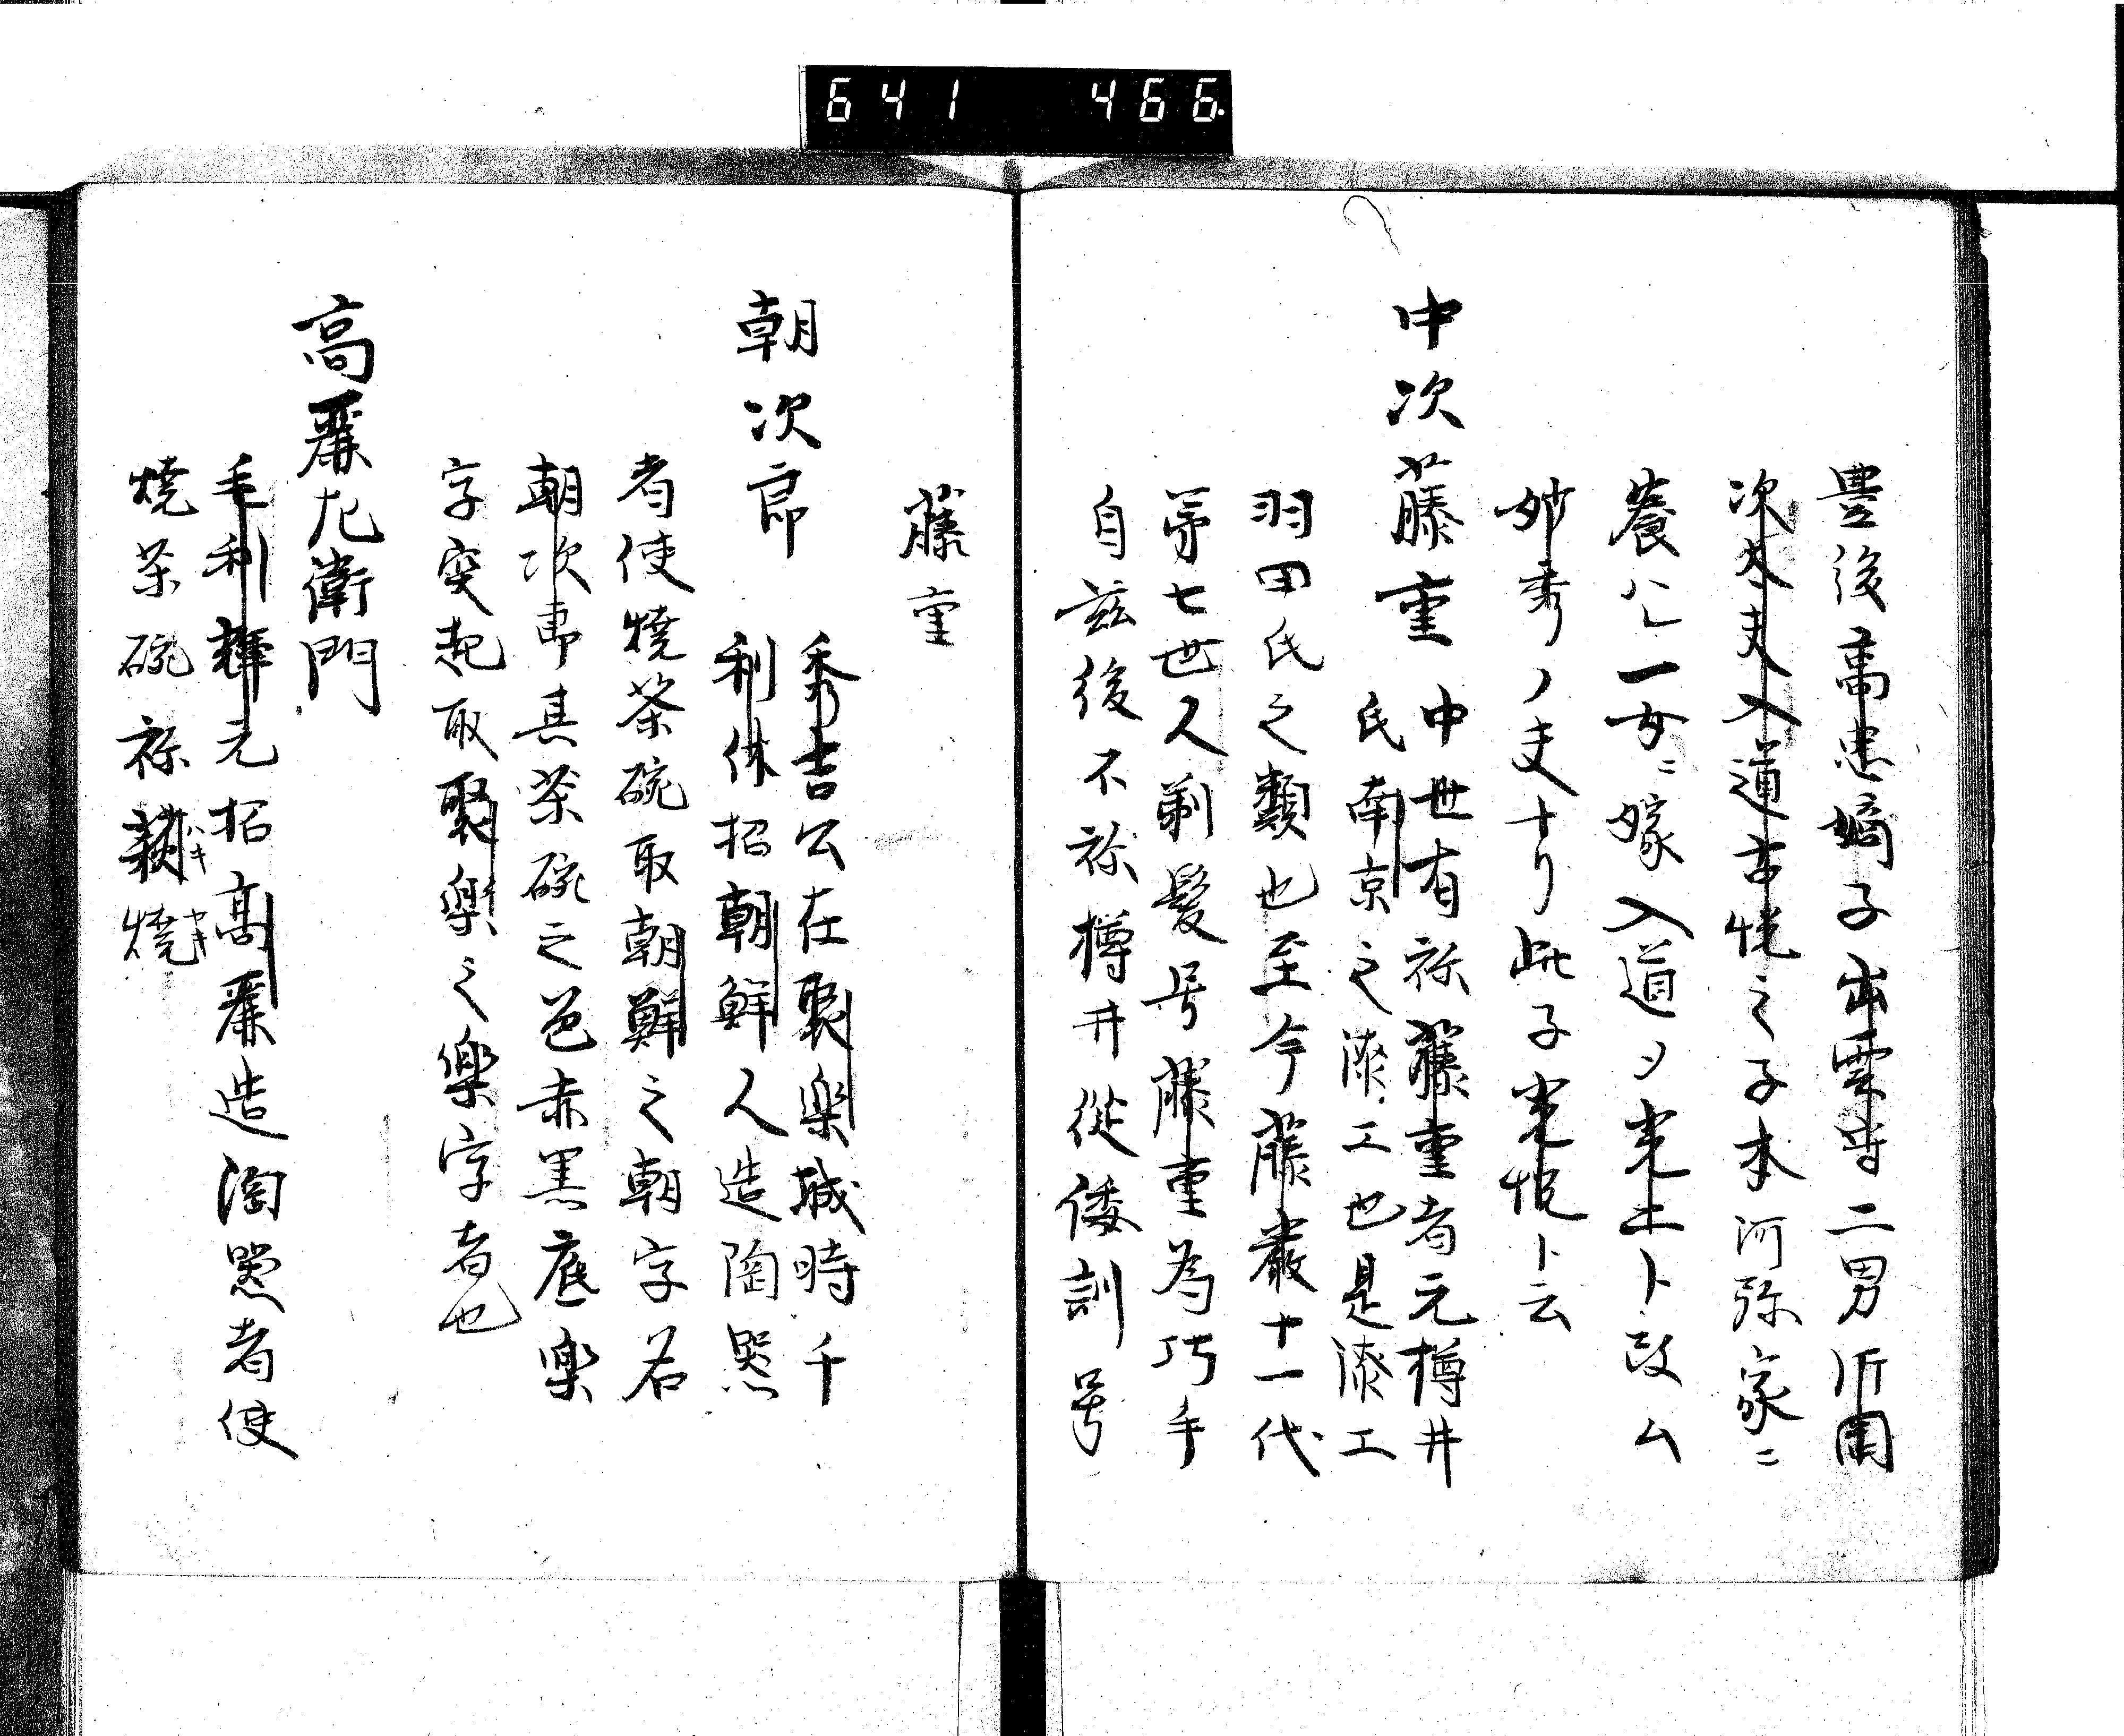 641 466
豊後高忠嫡子出雲守二男所圍
次太夫入道古悦之子本阿弥家ニ
養ハレ一女ニ嫁入道ヲ光土ト改ム
妙秀ノ夫ナリ此子光悦ト云
中次藤重 中世有祢藤重者元樽井
氏南京之漆工也是漆工
羽田氏之類也至今藤巌十一代
第七世人剃髪号藤重為巧手
自茲後不祢樽井従倭訓号
藤重
朝次郎 秀吉公在聚楽城時千
利休招朝鮮人造陶器
者使焼茶碗取朝鮮之朝字名
朝次郎其茶碗之色赤黒底楽
字突起取聚楽之楽字者也
高麗左衛門
毛利輝元招高麗造陶器者使
焼茶碗祢萩焼
ハキ ヤキ